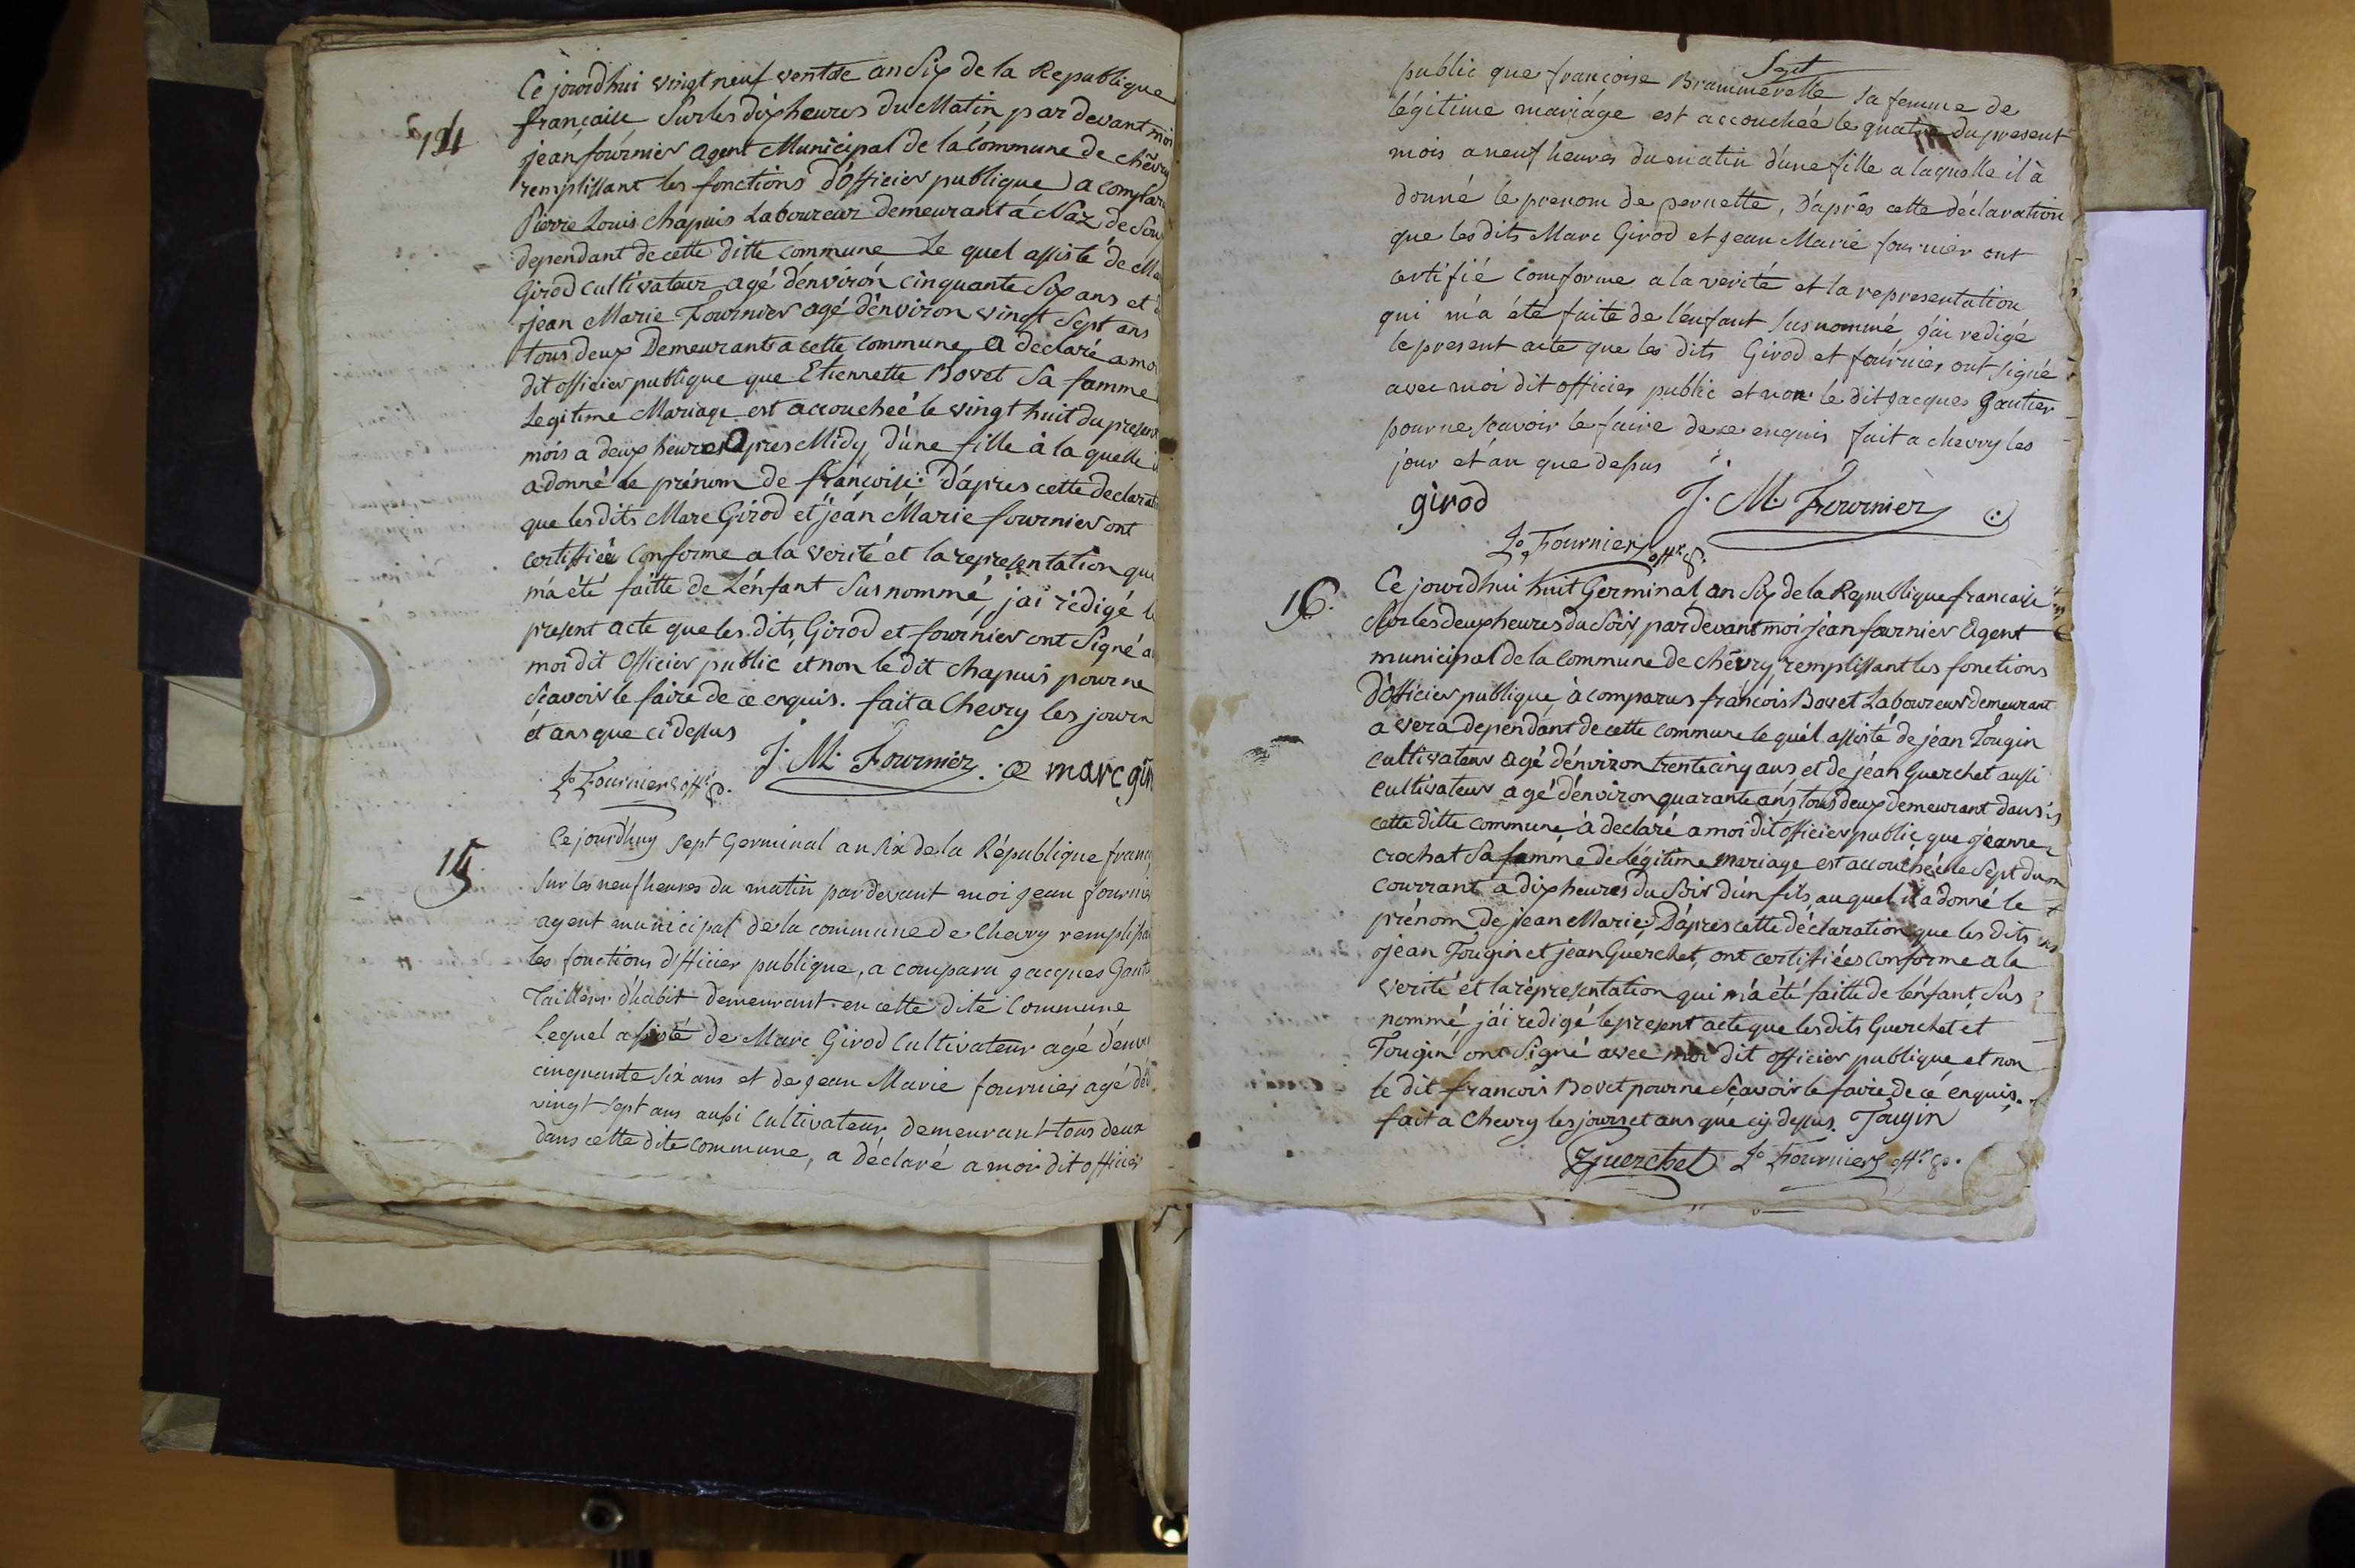 14
Ce jourdhui vingt neuf ventose an Six de la Republique
française Sur les dix heures du Matin, par devant moi
jean fournier agent Municipal de la Commune de chevry
remplissant les fonctions d'officier publique a compar
Pierre Louis Chapuis Laboureur demeurant á Naz de Sou
dependant de cette ditte commune Le quel assisté de Ma
Girod cultivateur agé d'environ cinquante Six ans et d
jean Marie Fournier agé d'environ vingt Sept ans
tous deux Demeurants a cette commune, a declaré a moi
dit officier publique que Etiennette Bovet Sa famme
Legitime Mariage est accoucheé le vingt huit du present
mois a deux heures apres Midy, d'une fille à la quelle i
a donné le prénom de françoise. D'apres cette declarati
que les dits Marc Girod et jean Marie fournier ont
certiffiée Conforme a la verité et la representation qui
m'a été faitte de L'énfant Sus nommé, j'ai rédigé le
present acte que les dits, Girod et fournier ont Signé a
moi dit Officier public et non le dit Chapuis pour ne
sçavoir le faire de ce enquis. fait a Chevry les jour
et ans que ci dessus
J. M. Fournier marc gir
Jn Fournier offr p.
15
Ce jourd'huy sept Germinal an six de la République franç
sur les neuf heures du matin pardevant moi jean fournier
agent municipal de la commune de Chevry remplissa
les fonctions d'fficier publique, a comparu jacques Gauti
Tailleur d'habit demeurant en cette dite Commune
Lequel assisté de Marc Girod Cultivateur agé d'envi
cinquante six ans et de jean Marie fournier agé d'en
vingt sept ans aussi Cultivateur demeurant tous deux
dans cette dite commune, a déclaré a moi dit officier
public que françoise Brammerelle sa femme de
légitime mariage est accoucheé le quatre du present
Sept
mois a neuf heures du matin d'une fille a laquelle il à
donné le prenom de pernette, D'après cette déclaration
que les dits Marc Girod et jean Marie fournier ont
certifié comforme a la verité et la representation
qui m'a été faite de l'enfant susnommé j'ai redigé
le present acte que les dits Girod et fournier ont signé
avec moi dit officier public et non le dit jacques Gautier
pour ne scavoir le faire de ce enquis fait a chevry les
jour et án que dessus
girod J. M. Fournier
Jn Fournier offr p.
16.
Ce jourdhui huit Germinal, an Six de la Republique francaise
Sur les deux heures du Soir, par devant moi jean fournier agent
municipal de la Commune de chévry, remplissant les fonctions
D'officier publique, à comparus françois Bovet Laboureur demeurant
a vera dependant de cette commune le quél assisté de jéan Tougin
cultivateur agé d'environ trente cinq ans et de jéan Guerchet aussi
cultivateur agé d'environ quarante ans, tous deux demeurant dans
cette ditte commune, à declaré a moi dit officier public, que jéanne
Crochat Sa famme de Légitime mariage est accouchée le Sept du
courrant a dix heures du Soir d'un fils, au quel il a donné le
prénom de jean Marie, D'apres cette déclaration que les dits
jéan Tougin et jean Guerchet, ont certifiées conforme a la
verité et la répresentation qui m'a été faitte de l'énfant Sus
nommé, j'ai redigé le present acte que les dits Guerchet et
Tougin ont Signé avec moi dit officier publique et non
le dit francois Bovet pour ne Sçavoir le faire de cé enquis.
fait a Chevry les jours et ans que cy dessus. Tougin
jguerchet Jn Fournier offr p.